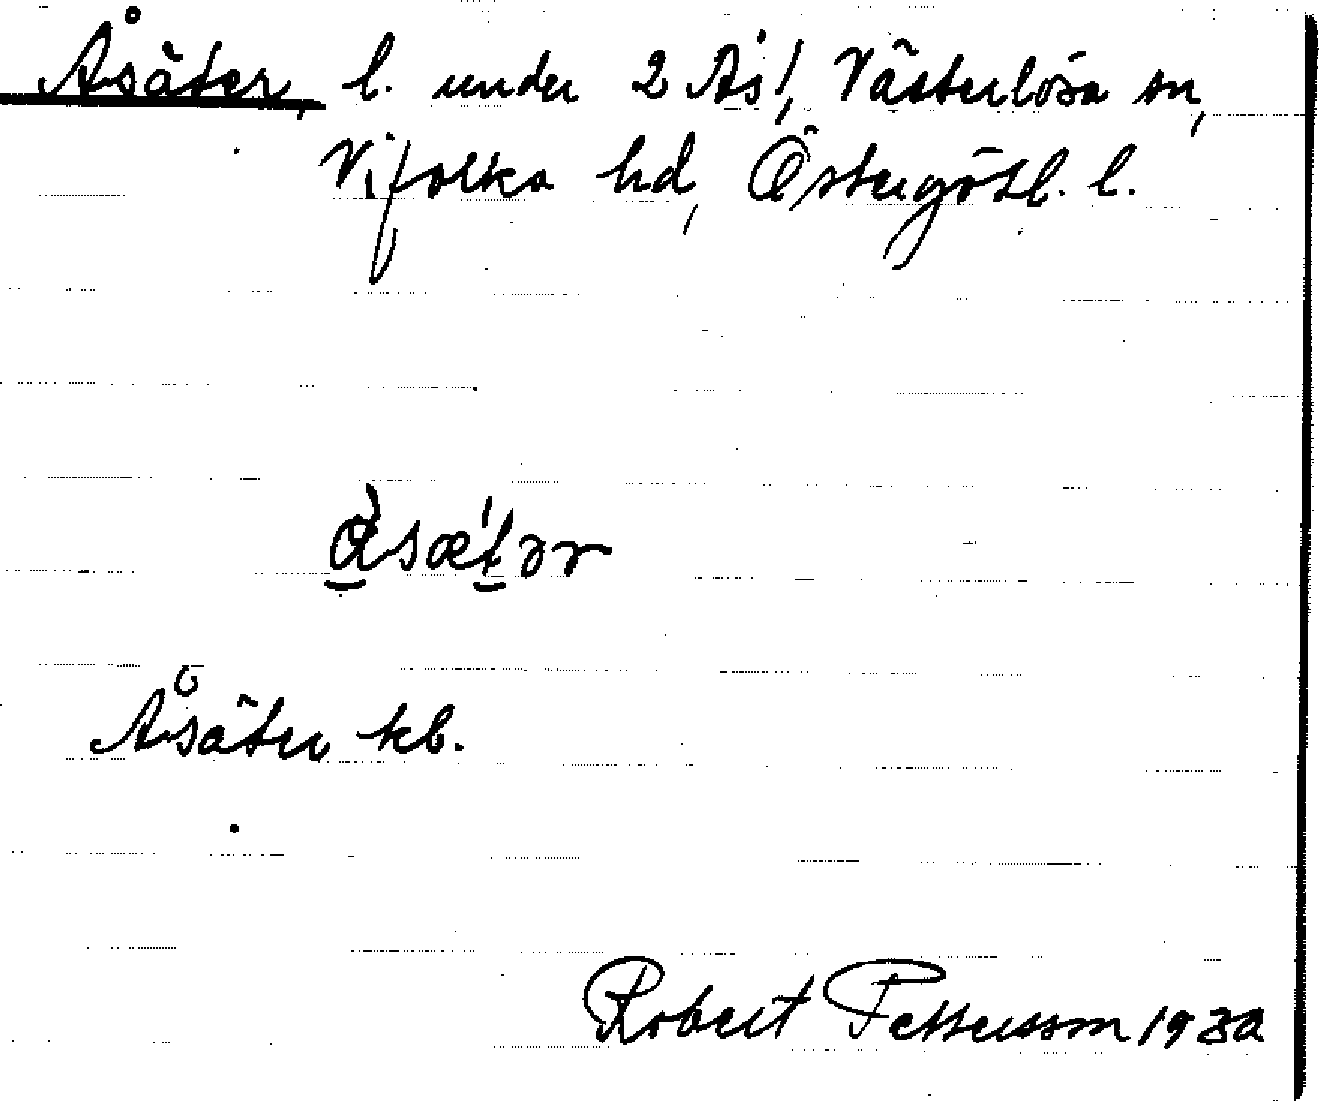 Åsäter, l. under 2 Ås!, Västerlösa sn,
Vifolka hd, Östergötl. l.
Åsäter kb.
Robert Pettersson 1930